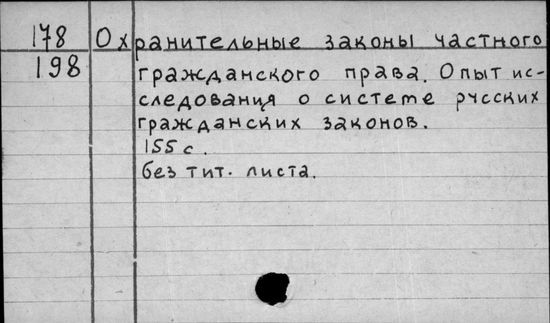 178 Охранительные законы частного
198 гражданского права. Опыт ис-
следования о системе русских
гражданских законов.
155 с.
без тит. листа.